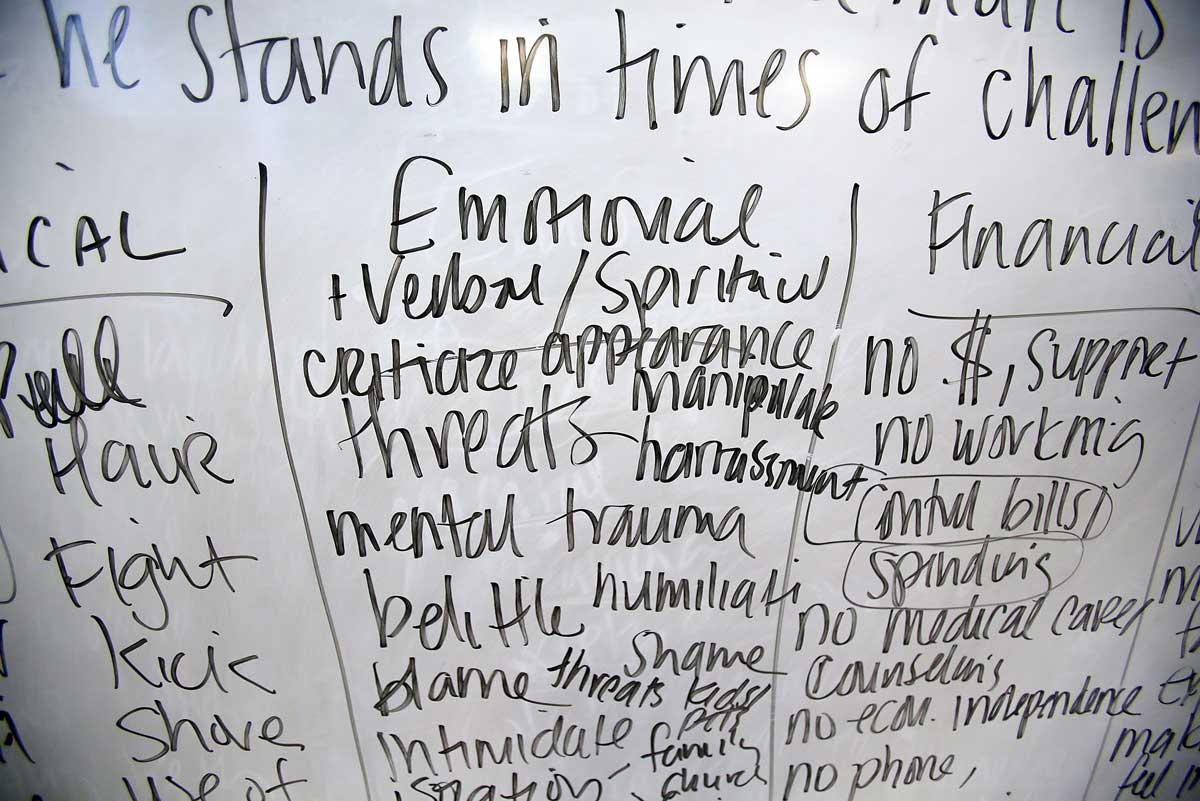 he stands in times of challen
ICAL
Pull
Hair
Fight
Kick
Shove
use of
Emotional
+ Verbal / Spiritual
criticize appearance
manipulate
threats
harrassment
mental trauma
belittle humiliati
shame
blame threats kids/
pets
intimidate family
isolation - church
Financial
no $, support
no working
control bills
spending
no medical career
counseling
no econ. independence
no phone,
mak